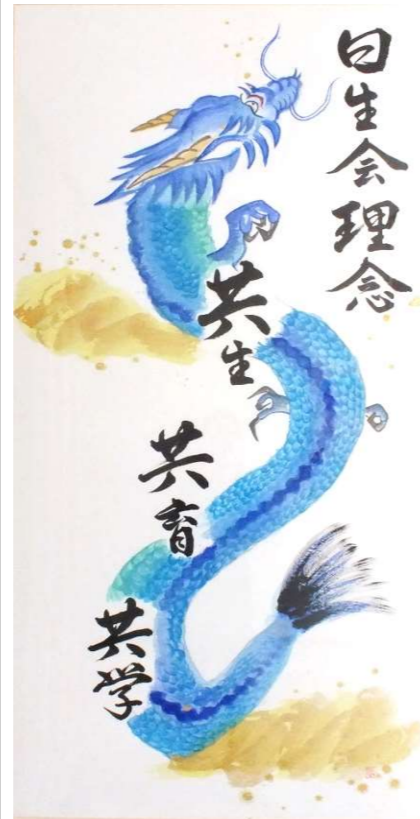 日生会理念
共生
共育
共学